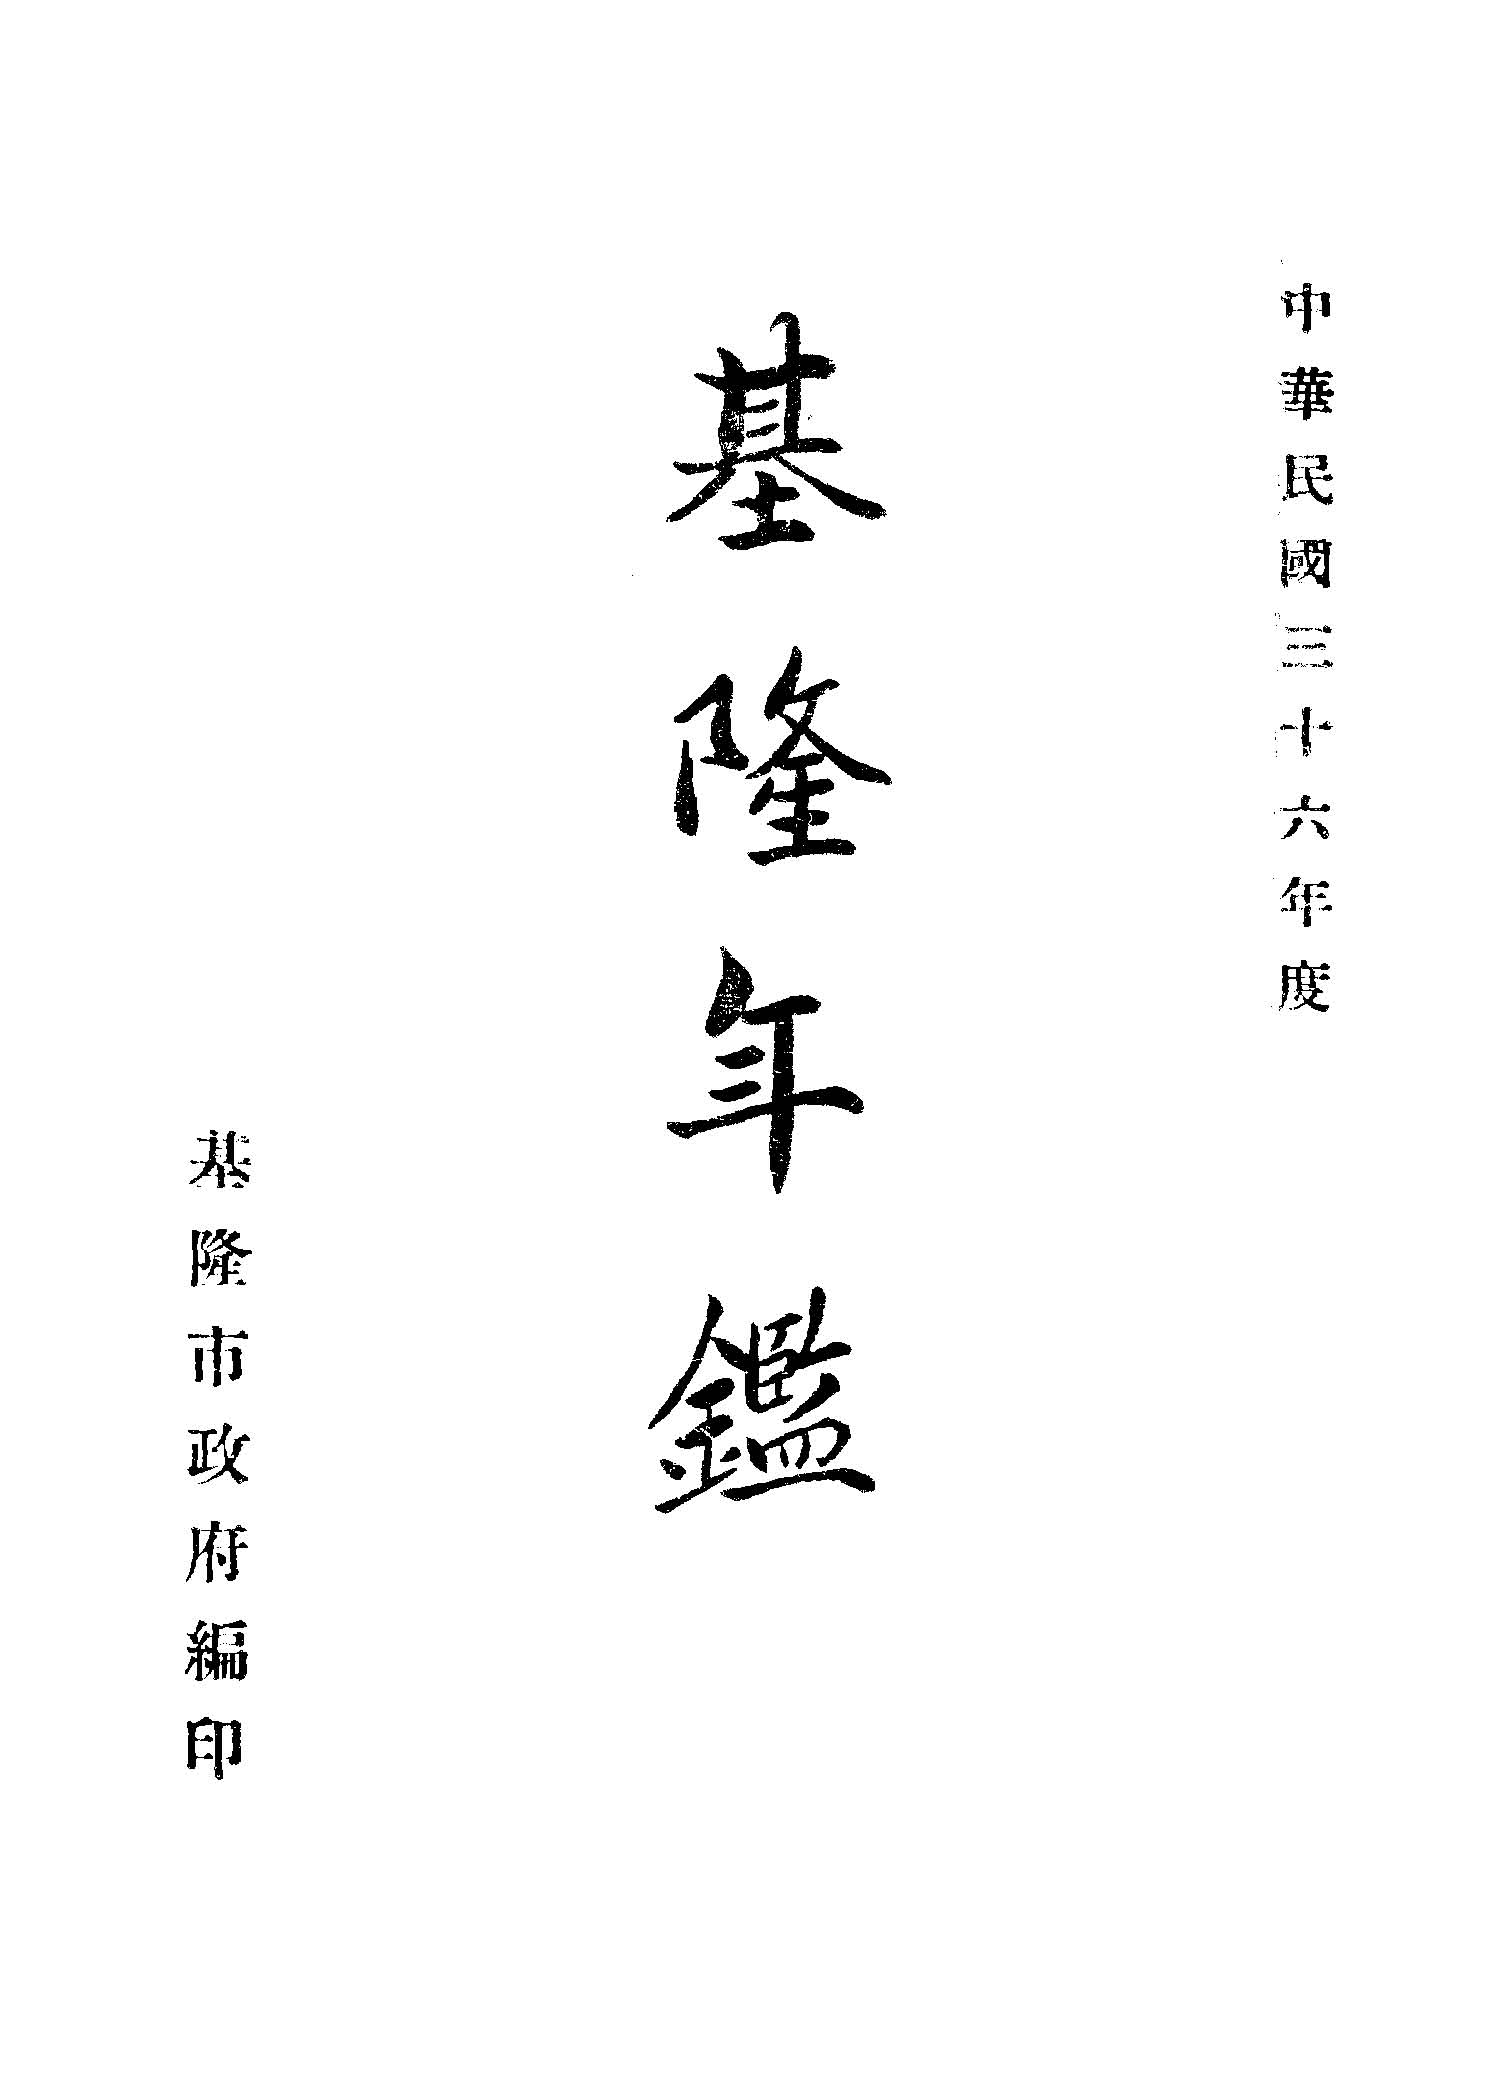 中華民國三十六年度
基隆年鑑
基隆市政府編印